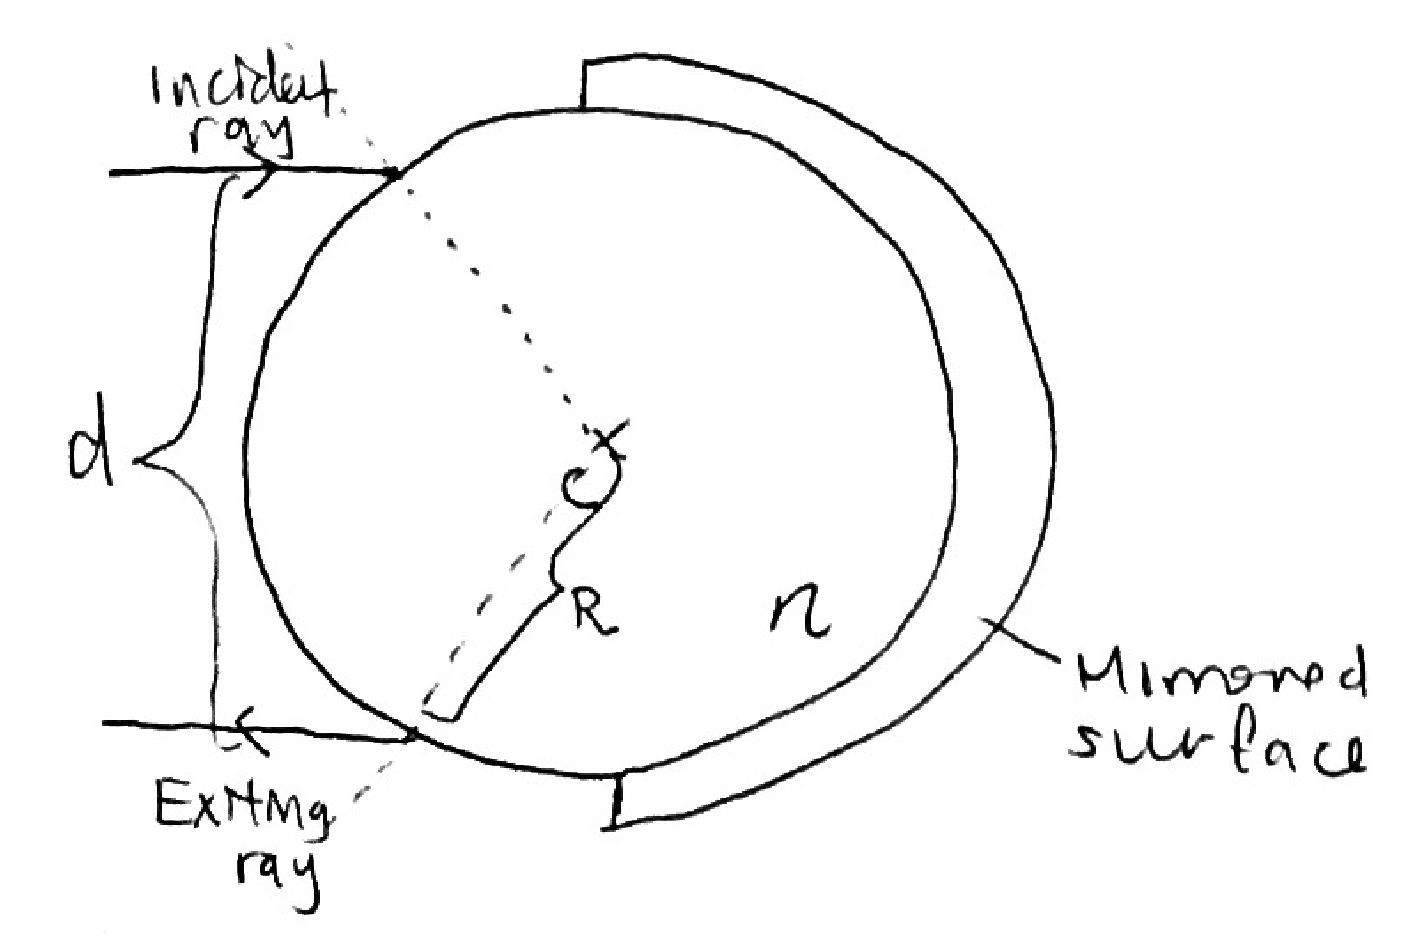 Incident
ray
d
C
R
n
Mirrored
surface
Exiting
ray